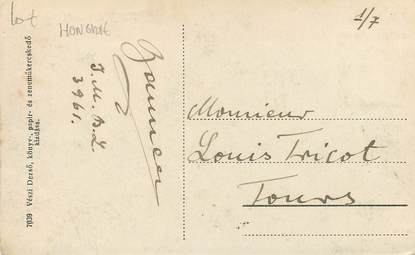 lot
HONGRIE
1/7
7039 Vészi Dezső, könyv-, papir- és zeneműkereskedő
kiadása.
J. M. B. L.
3961.
Monsieur
Louis Tricot
Tours